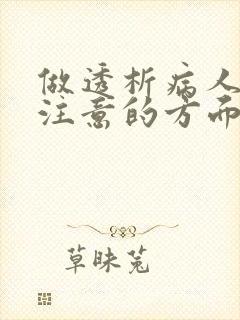 做透析病人
注意的方面
草昧菟